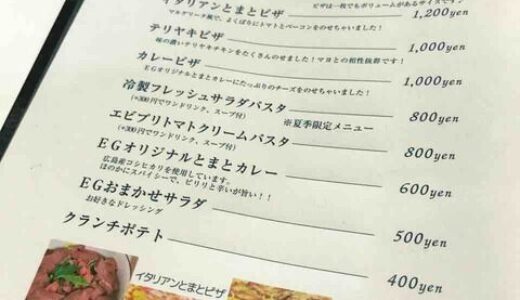 ピザは一枚でもボリュームがあるサイズです
イタリアンとまとピザ 1,200yen
マルゲリータ風で、よくばりにトマトとベーコンをのせちゃいました！
テリヤキピザ 1,000yen
味の濃いテリヤキチキンをたくさんのせました！マヨとの相性抜群です！
カレーピザ 1,000yen
EGオリジナルとまとカレーにたっぷりのチーズをのせちゃいました！
冷製フレッシュサラダパスタ 800yen
(+300円でワンドリンク、スープ付) ※夏季限定メニュー
エビプリトマトクリームパスタ 800yen
(+300円でワンドリンク、スープ付)
EGオリジナルとまとカレー 600yen
広島産コシヒカリを使用しています。
ほのかにスパイシーで、ピリリと辛いが旨い！！
EGおまかせサラダ 500yen
お好きなドレッシング
クランチポテト 400yen
イタリアンとまとピザ